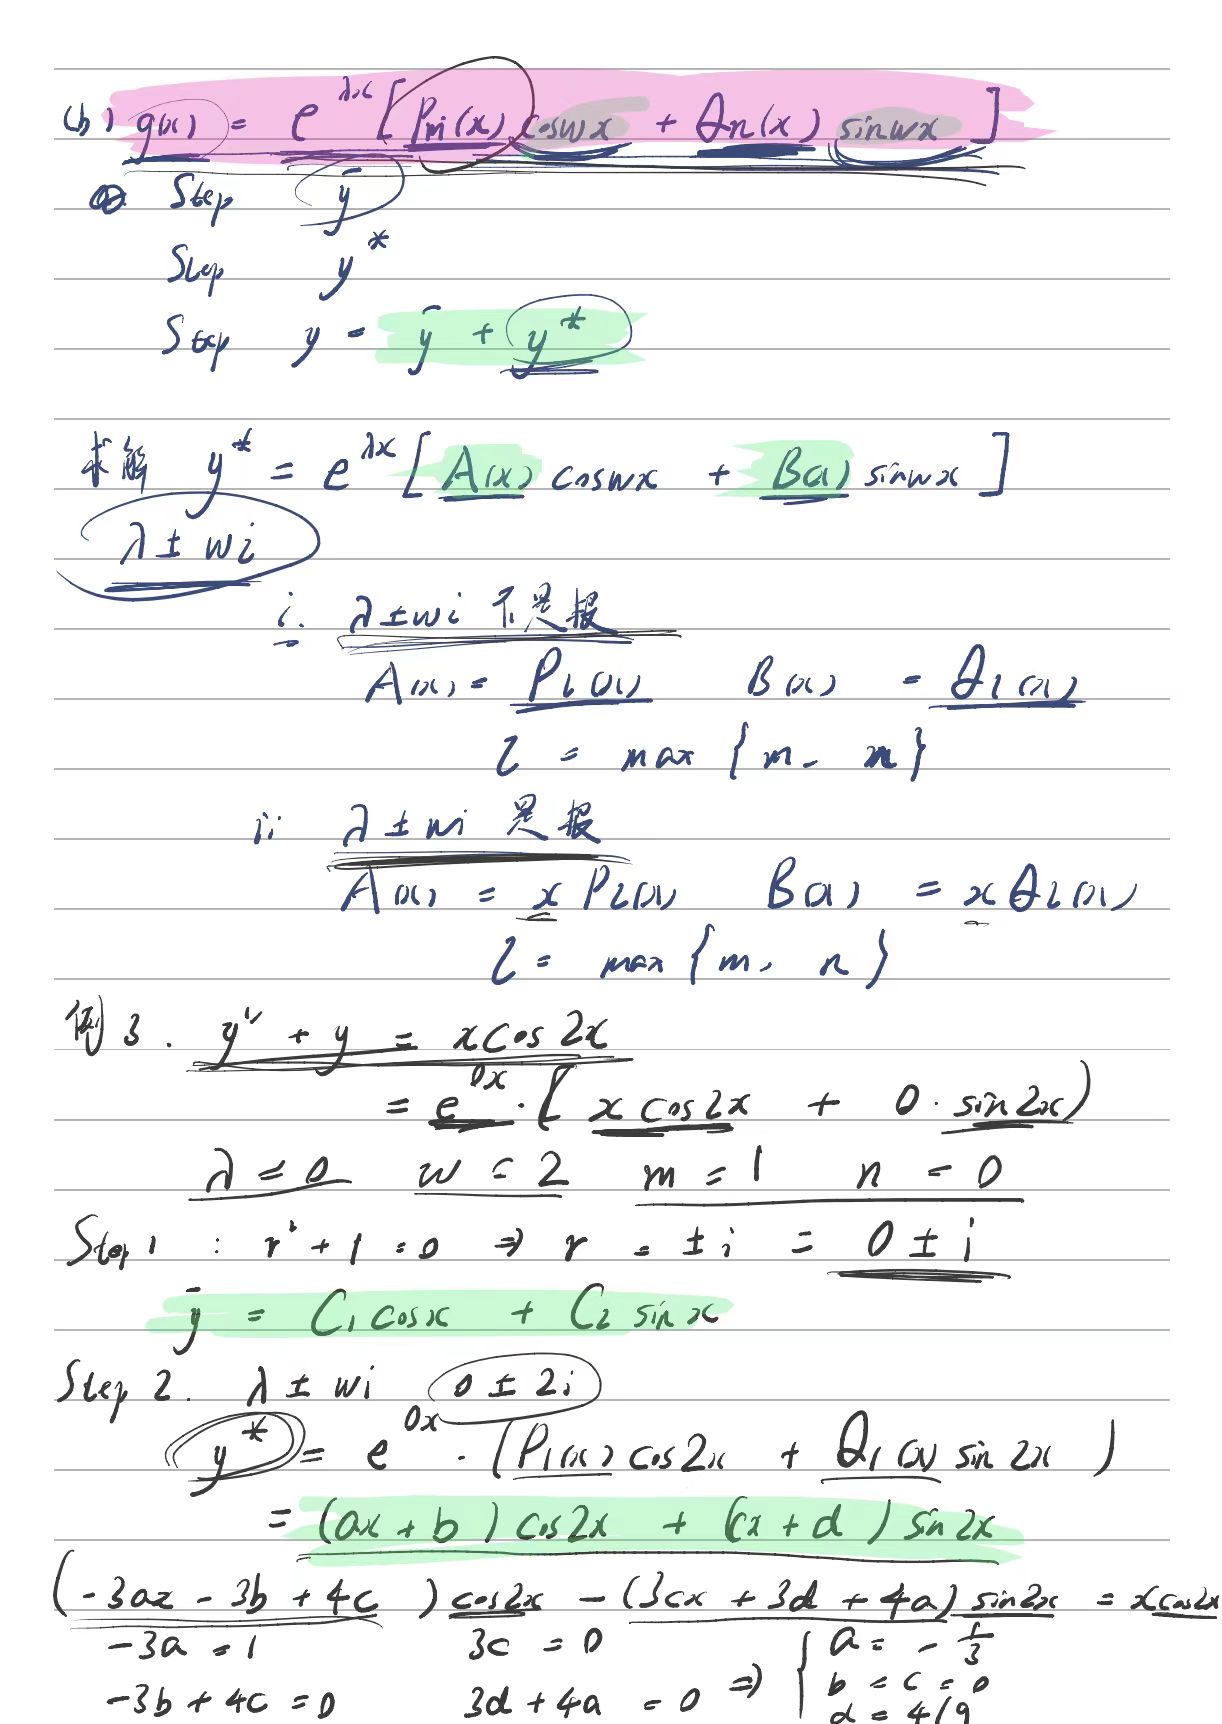 (b) g(x) = e^{λx} [ Pm(x) cosωx + Qn(x) sinωx ]
Step ȳ
Step y*
Step y = ȳ + y*
求解 y* = e^{λx} [ A(x) cosωx + B(x) sinωx ]
λ ± ωi
i. λ ± ωi 不是根
A(x) = Pl(x) B(x) = Ql(x)
l = max { m, n }
ii λ ± ωi 是根
A(x) = x Pl(x) B(x) = x Ql(x)
l = max { m, n }
例3. y'' + y = x cos 2x
= e^{0x} · [ x cos2x + 0 · sin2x )
λ = 0 ω = 2 m = 1 n = 0
Step 1 : r² + 1 = 0 ⇒ r = ± i = 0 ± i
ȳ = C₁ cosx + C₂ sinx
Step 2. λ ± ωi 0 ± 2i
y* = e^{0x} · ( P₁(x) cos2x + Q₁(x) sin2x )
= (ax + b) cos2x + (cx + d) sin2x
(-3ax - 3b + 4c) cos2x - (3cx + 3d + 4a) sin2x = x cos2x
-3a = 1 3c = 0 ⇒ { a = -1/3
-3b + 4c = 0 3d + 4a = 0 b = c = 0
d = 4/9